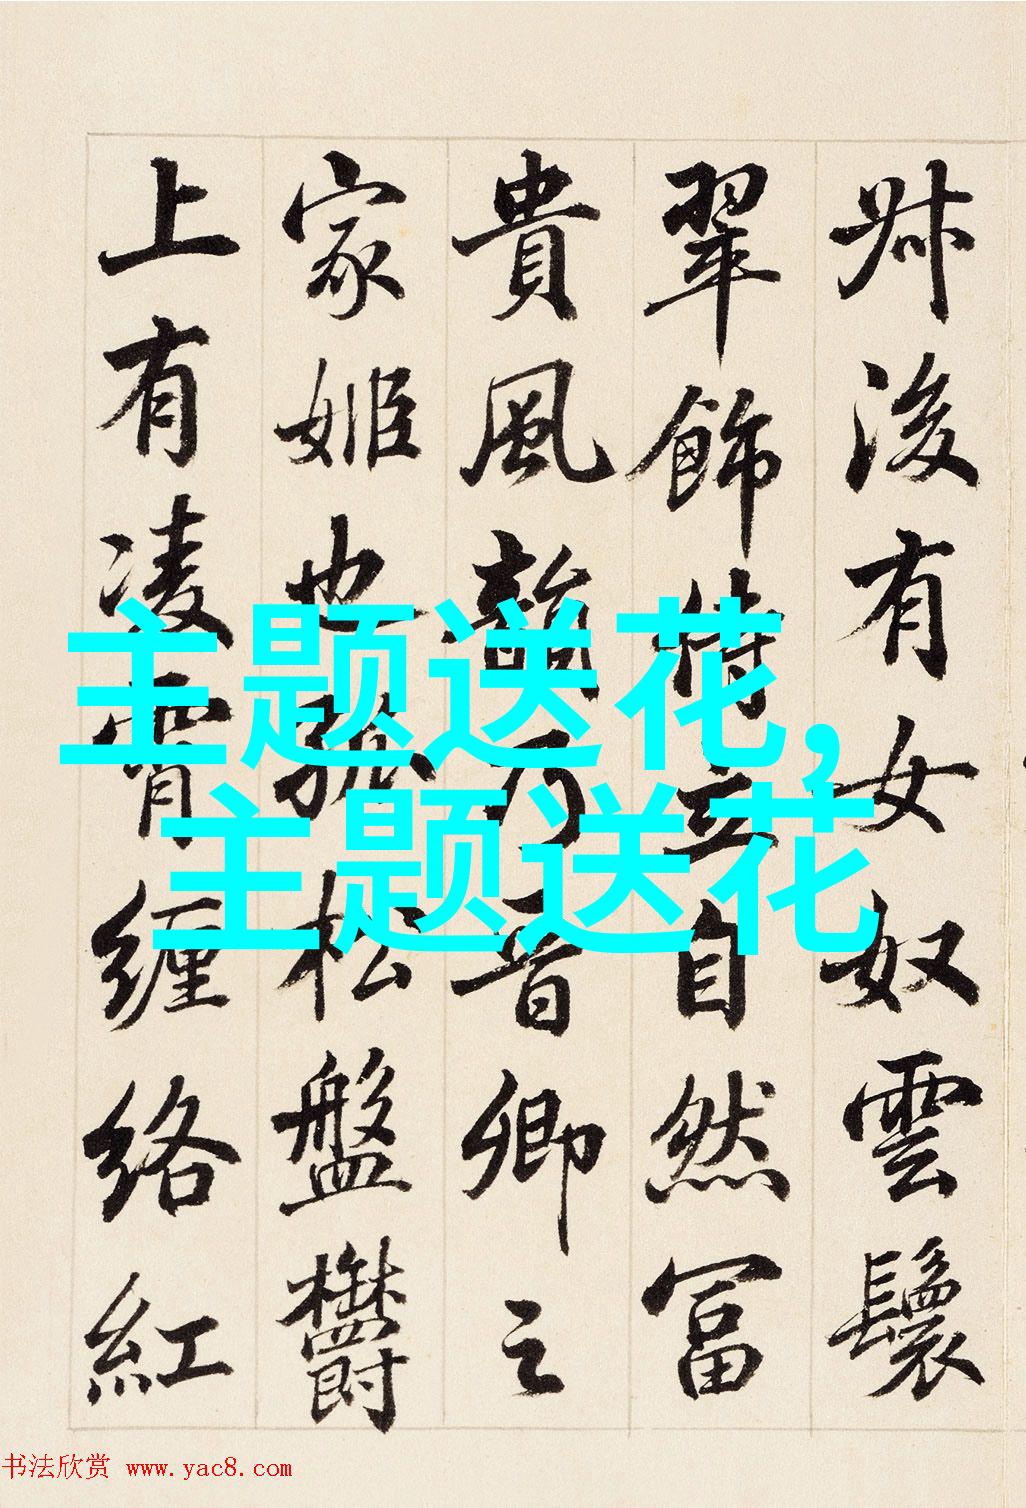 叔後有女奴雲鬟
翠飾侍立自然富
貴風韻乃晉卿之
家姬也孤松盤欝
上有凌霄纏絡紅
主题送花,
主题送花
书法欣赏 www.yac8.com